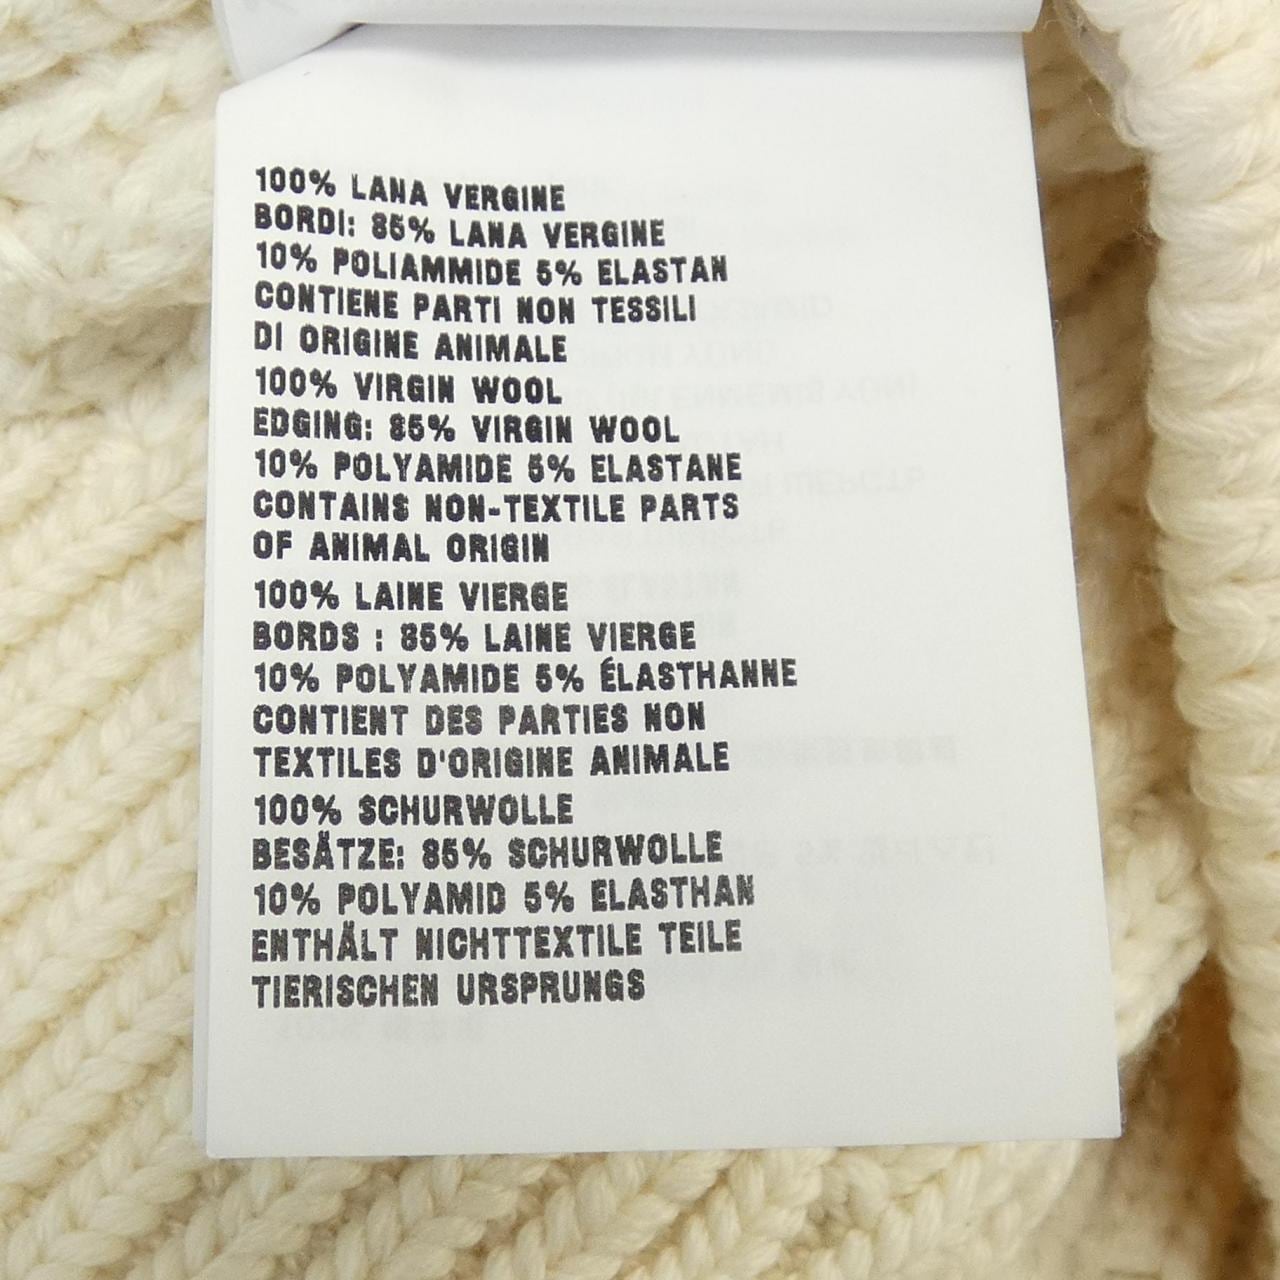 100% LANA VERGINE
BORDI: 85% LANA VERGINE
10% POLIAMMIDE 5% ELASTAN
CONTIENE PARTI NON TESSILI
DI ORIGINE ANIMALE
100% VIRGIN WOOL
EDGING: 85% VIRGIN WOOL
10% POLYAMIDE 5% ELASTANE
CONTAINS NON-TEXTILE PARTS
OF ANIMAL ORIGIN
100% LAINE VIERGE
BORDS : 85% LAINE VIERGE
10% POLYAMIDE 5% ÉLASTHANNE
CONTIENT DES PARTIES NON
TEXTILES D'ORIGINE ANIMALE
100% SCHURWOLLE
BESÄTZE: 85% SCHURWOLLE
10% POLYAMID 5% ELASTHAN
ENTHÄLT NICHTTEXTILE TEILE
TIERISCHEN URSPRUNGS